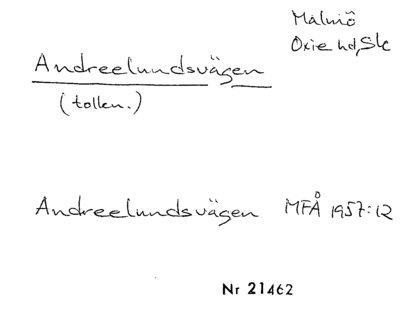 Malmö
Oxie hd, Sk
Andreelundsvägen
(tolkn.)
Andreelundsvägen MFÅ 1957:12
Nr 21462